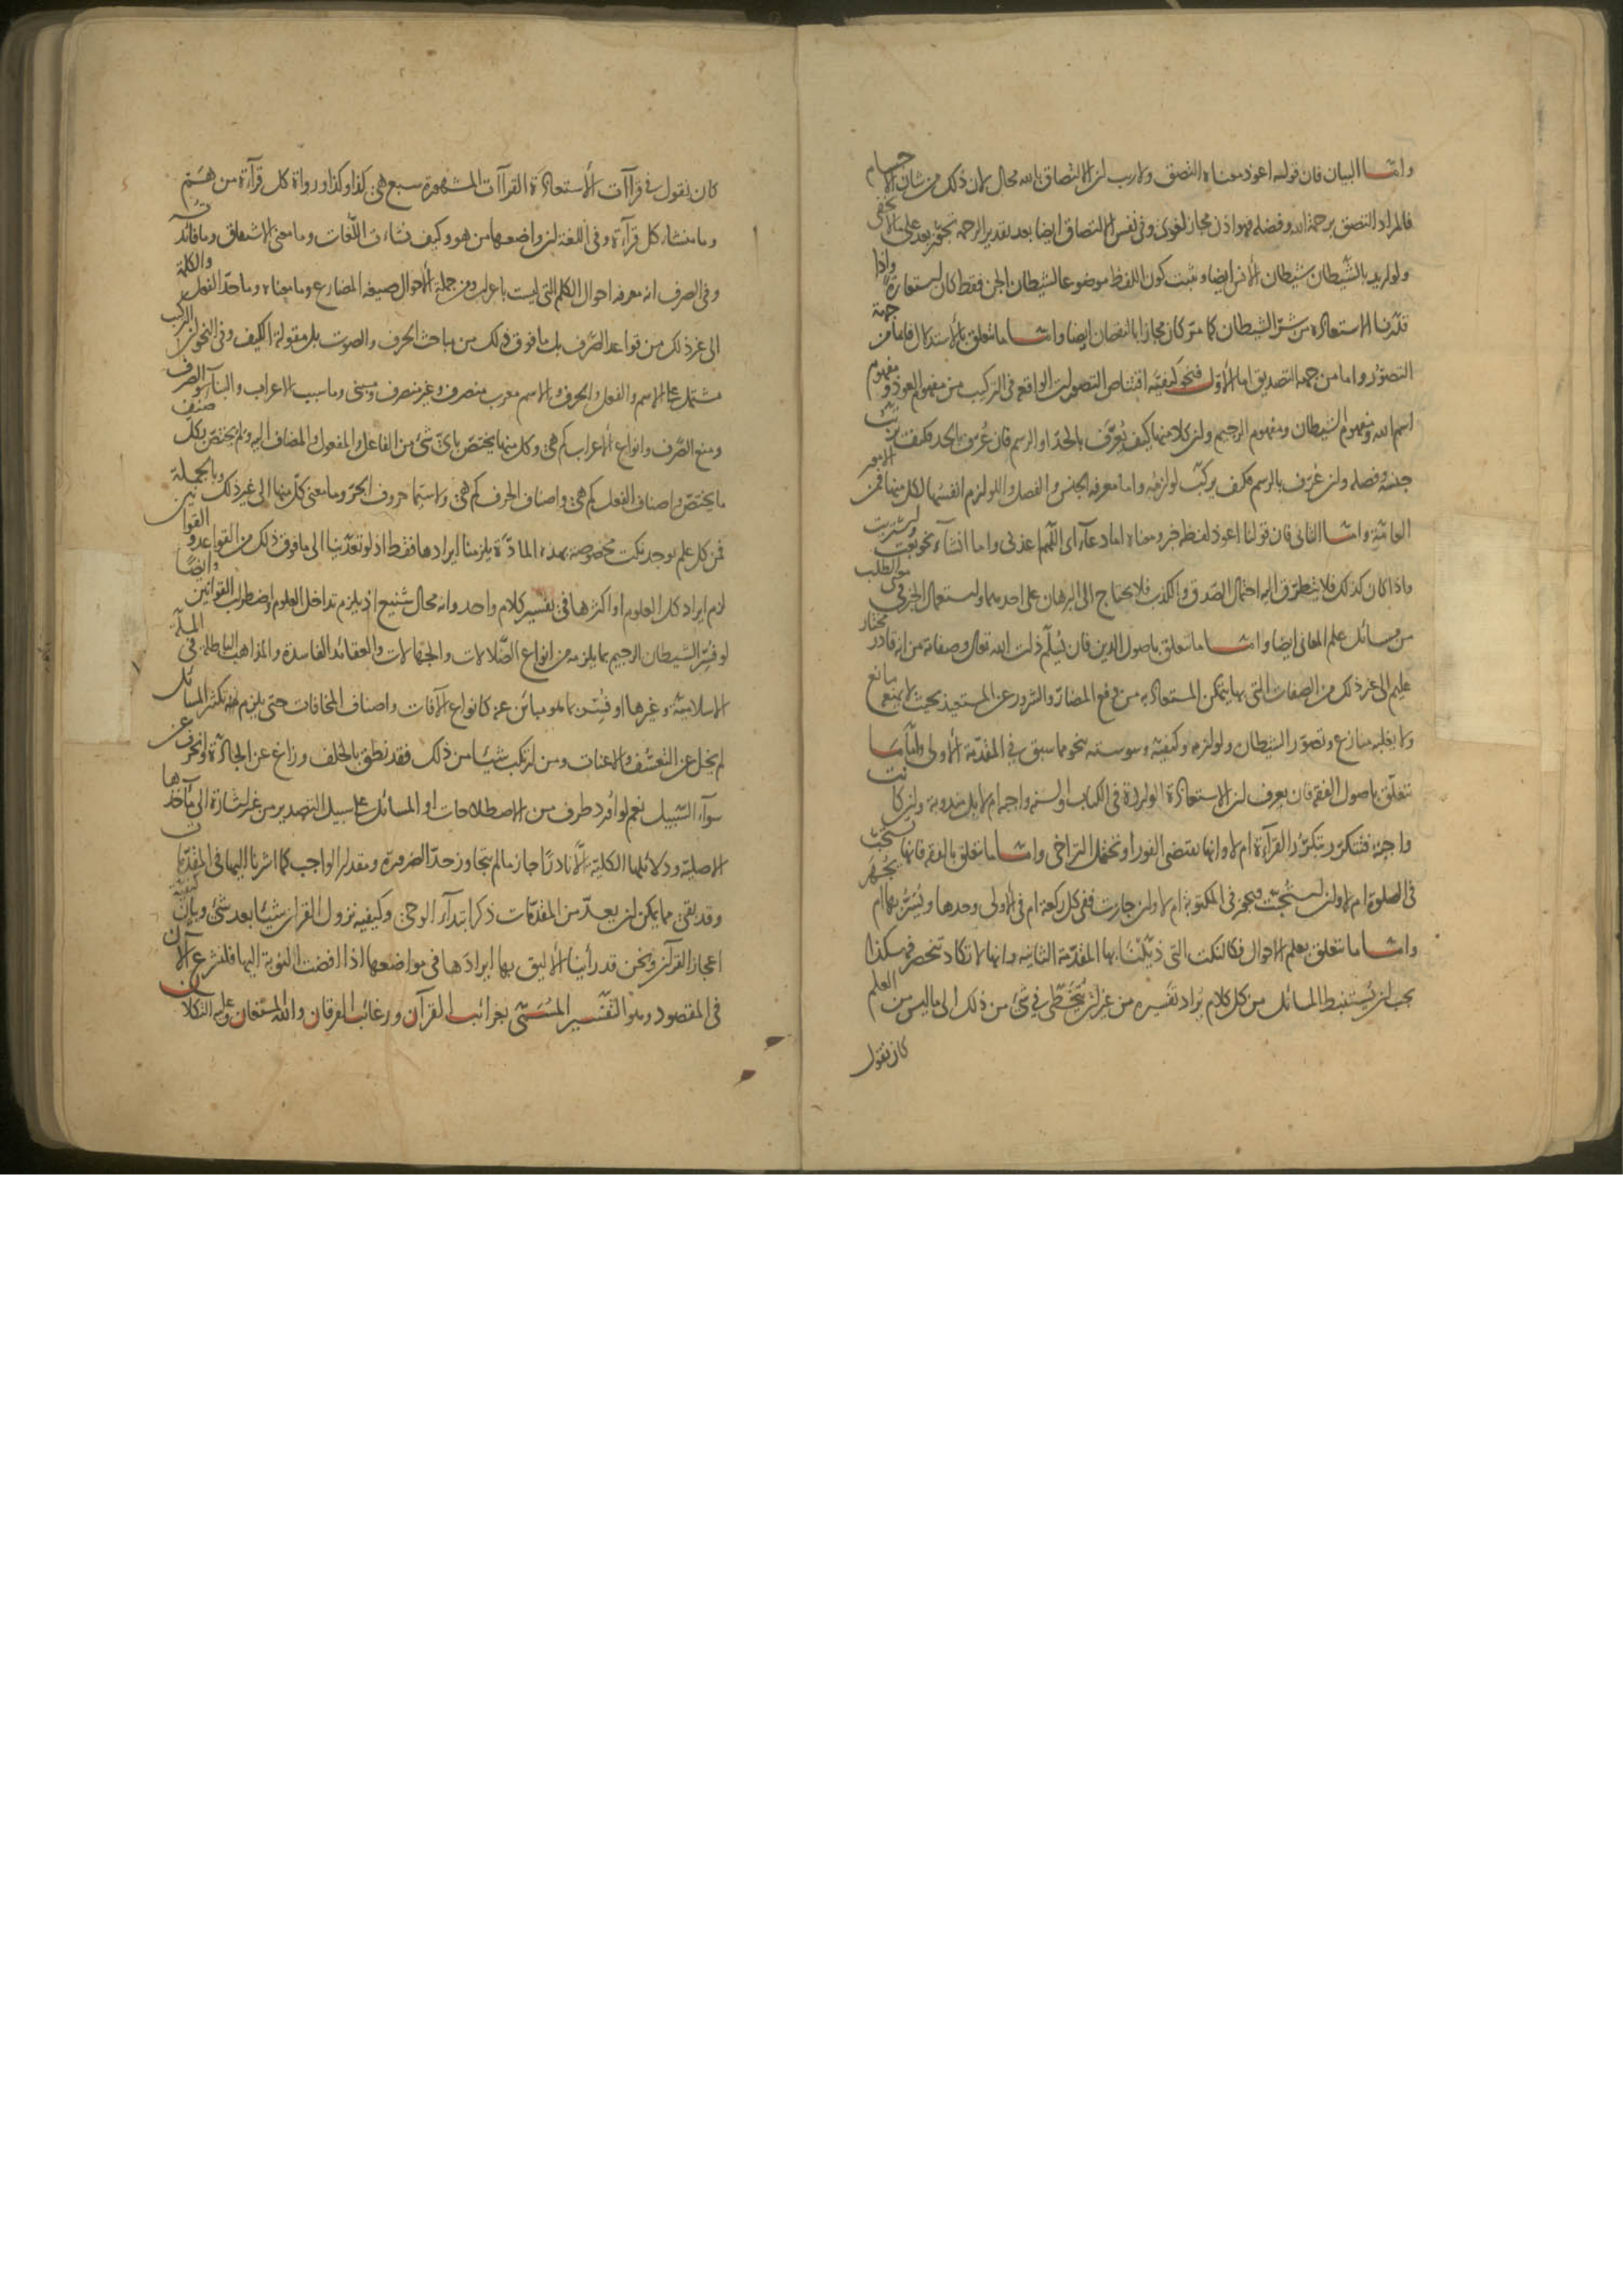 واما البيان فان قوله اعوذ معناه التصق ولا ريب ان الالتصاق بالله محال لان ذلك من شان الاجسام
فالمراد التصق برحمة الله وفضله فهو اذن مجاز لغوى وفى نفس الالتصاق ايضا بعد تقدير الرحمة تجوز بعد على ما لا يخفى
ولو اريد بالشيطان شيطان الانس ايضا ويثبت كون اللفظ موضوعا لشيطان الجن فقط كان استعارة واذا
قدرنا الاستعاذة من شر الشيطان كما مر كان مجازا بالنقصان ايضا واما ما تتعلق بالاستدلال فاما من جهة
التصور واما من جهة التصديق اما الاول فنحو كيفية اقتناص التصورات الواقعة فى التركيب من مفهوم العوذ ومفهوم
اسم الله ومفهوم الشيطان ومفهوم الرجيم وان كلا منها كيف يعرف بالحد او الرسم فان عرف بالحد فكيف يرتب
جنسه وفصله وان عرف بالرسم فكيف يركب لوازمه واما معرفة الجنس والفصل واللوازم انفسها لكل منها فمن الامور
العامة واما الثانى فان قولنا اعوذ لفظه خبر ومعناه اما دعاء اى اللهم اعذنى واما انشاء نحو بعت واشتريت
واذا كان كذلك فلا يتطرق اليه احتمال الصدق والكذب فلا يحتاج الى البرهان على احدهما واستعمال الخبر فى موضع الطلب
من مسائل علم المعانى ايضا واما ما تتعلق باصول الدين فان يعلم ذات الله تعالى وصفاته من انه قادر مختار
عليم الى غير ذلك من الصفات التى بها يتمكن المستعاذ به من دفع المضار والشرور عن المستعيذ بحيث لا يمنعه مانع
ولا يغلبه منازع وتصور الشيطان ولوازمه وكيفية وسوسته نحو ما سبق فى المقدمة الاولى واما ما
تتعلق باصول الفقه فان يعرف ان الاستعاذة الواردة فى الكتاب او السنة واجبة ام لا بل مندوبة وان كانت
واجبة فتتكرر بتكرر القراءة ام لا وانها تقتضى الفور او تحتمل التراخى واما ما تتعلق بالفقه فانها تستحب
فى الصلوة ام لا وان استحبت فيجوز فى المكتوبة ام لا وان جازت ففى كل ركعة ام فى الاولى وحدها ويسر بها ام يجهر
واما ما تتعلق بعلم الاحوال فكالنكت التى ذيلنا بها المقدمة الثانية وانها لا تكاد تنحصر فهكذا
يجب ان يستنبط المسائل من كل كلام يراد تفسيره من غير ان يتخطى فى شئ من ذلك الى ما ليس من العلم
كان نقول
كان نقول فى قراآت الاستعاذة القراآت المشهورة سبع هى كذا وكذا ورواة كل قراءة من هم
وما منشاء كل قراءة وفى اللغة ان واضعها من هو وكيف نشاءت اللغات وما معنى الاشتقاق وما فائدته
وفى الصرف انه معرفة احوال الكلم التى ليست باعراب ومن جملة الاحوال صيغة المضارع وما معناه وما حد الفعل والكلمة
الى غير ذلك من قواعد الصرف بل ما فوق ذلك من مباحث الحرف والصوت بل مقولة الكيف وفى النحو ان المركب
مشتمل على الاسم والفعل والحرف والاسم معرب منصرف وغير منصرف ومبنى وما سبب الاعراب والبناء والصرف
ومنع الصرف وانواع الاعراب كم هى وكل منها يختص باى شئ من الفاعل والمفعول والمضاف اليه ولم يختص بكل صنف
ما يختص واصناف الفعل كم هى واصناف الحرف كم هى ولا سيما حروف الجر وما معنى كل منها الى غير ذلك وبالجملة
فمن كل علم يوجد نكت مخصوصة بهذه المادة يلزمنا ايرادها فقط اذ لو تعدينا الى ما فوق ذلك من القواعد والقوانين
لزم ايراد كل العلوم او اكثرها فى تفسير كلام واحد وانه محال شنيع اذ يلزم تداخل العلوم واضطراب القوانين وايضا
لو فسر الشيطان الرجيم بما يلزمه من انواع الضلالات والجهالات والعقائد الفاسدة والمذاهب الباطلة فى الملة
الاسلامية وغيرها او فسر بما هو مباين عنه كانواع الآفات واصناف المخافات حتى يلزم منه تكثر المسائل
لم يخل عن التعسف والاعنات ومن ارتكب شيئا من ذلك فقد نطق بالخلف وزاغ عن الجادة وانحرف عن
سواء السبيل نعم لو افرد طرف من الاصطلاحات او المسائل على سبيل التصدير من غير اشارة الى مآخذها
الاصلية ودلائلها الكلية الا نادرا جاز ما لم يتجاوز حد الضرورة ومقدار الواجب كما اشرنا اليها فى المقدمات
وقد بقى مما يمكن ان يعد من المقدمات ذكر ابتداء الوحى وكيفية نزول القرآن شيئا بعد شئ وبيان كيفية
اعجاز القرآن ونحن قد رأينا الاليق بها ايرادها فى مواضعها اذا افضت النوبة اليها فلنشرع الآن
فى المقصود وهو التفسير المسمى بغرائب القرآن ورغائب الفرقان والله المستعان وعليه التكلان